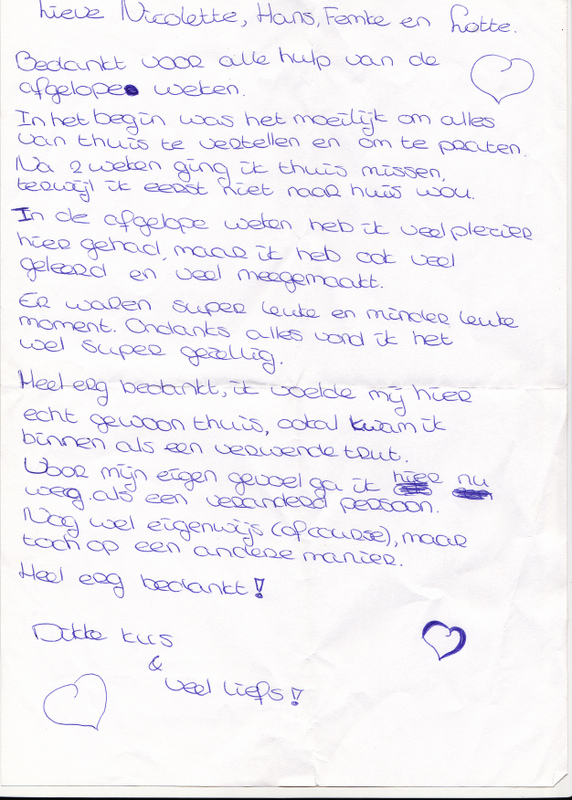 Lieve Nicolette, Hans, Femke en Lotte.
Bedankt voor alle hulp van de
afgelope weken.
In het begin was het moeilijk om alles
van thuis te vertellen en om te praten.
Na 2 weken ging ik thuis missen,
terwijl ik eerst niet naar huis wou.
In de afgelope weken heb ik veel plezier
hier gehad, maar ik heb ook veel
geleerd en veel meegemaakt.
Er waren super leuke en minder leuke
moment. Ondanks alles vond ik het
wel super gezellig.
Heel erg bedankt, ik voelde mij hier
echt gewoon thuis, ookal kwam ik
binnen als een verwende trut.
Voor mijn eigen gevoel ga ik hier nu
weg als een veranderd persoon.
Nog wel eigenwijs (ofcourse), maar
toch op een andere manier.
Heel erg bedankt!
Dikke kus
&
veel liefs!